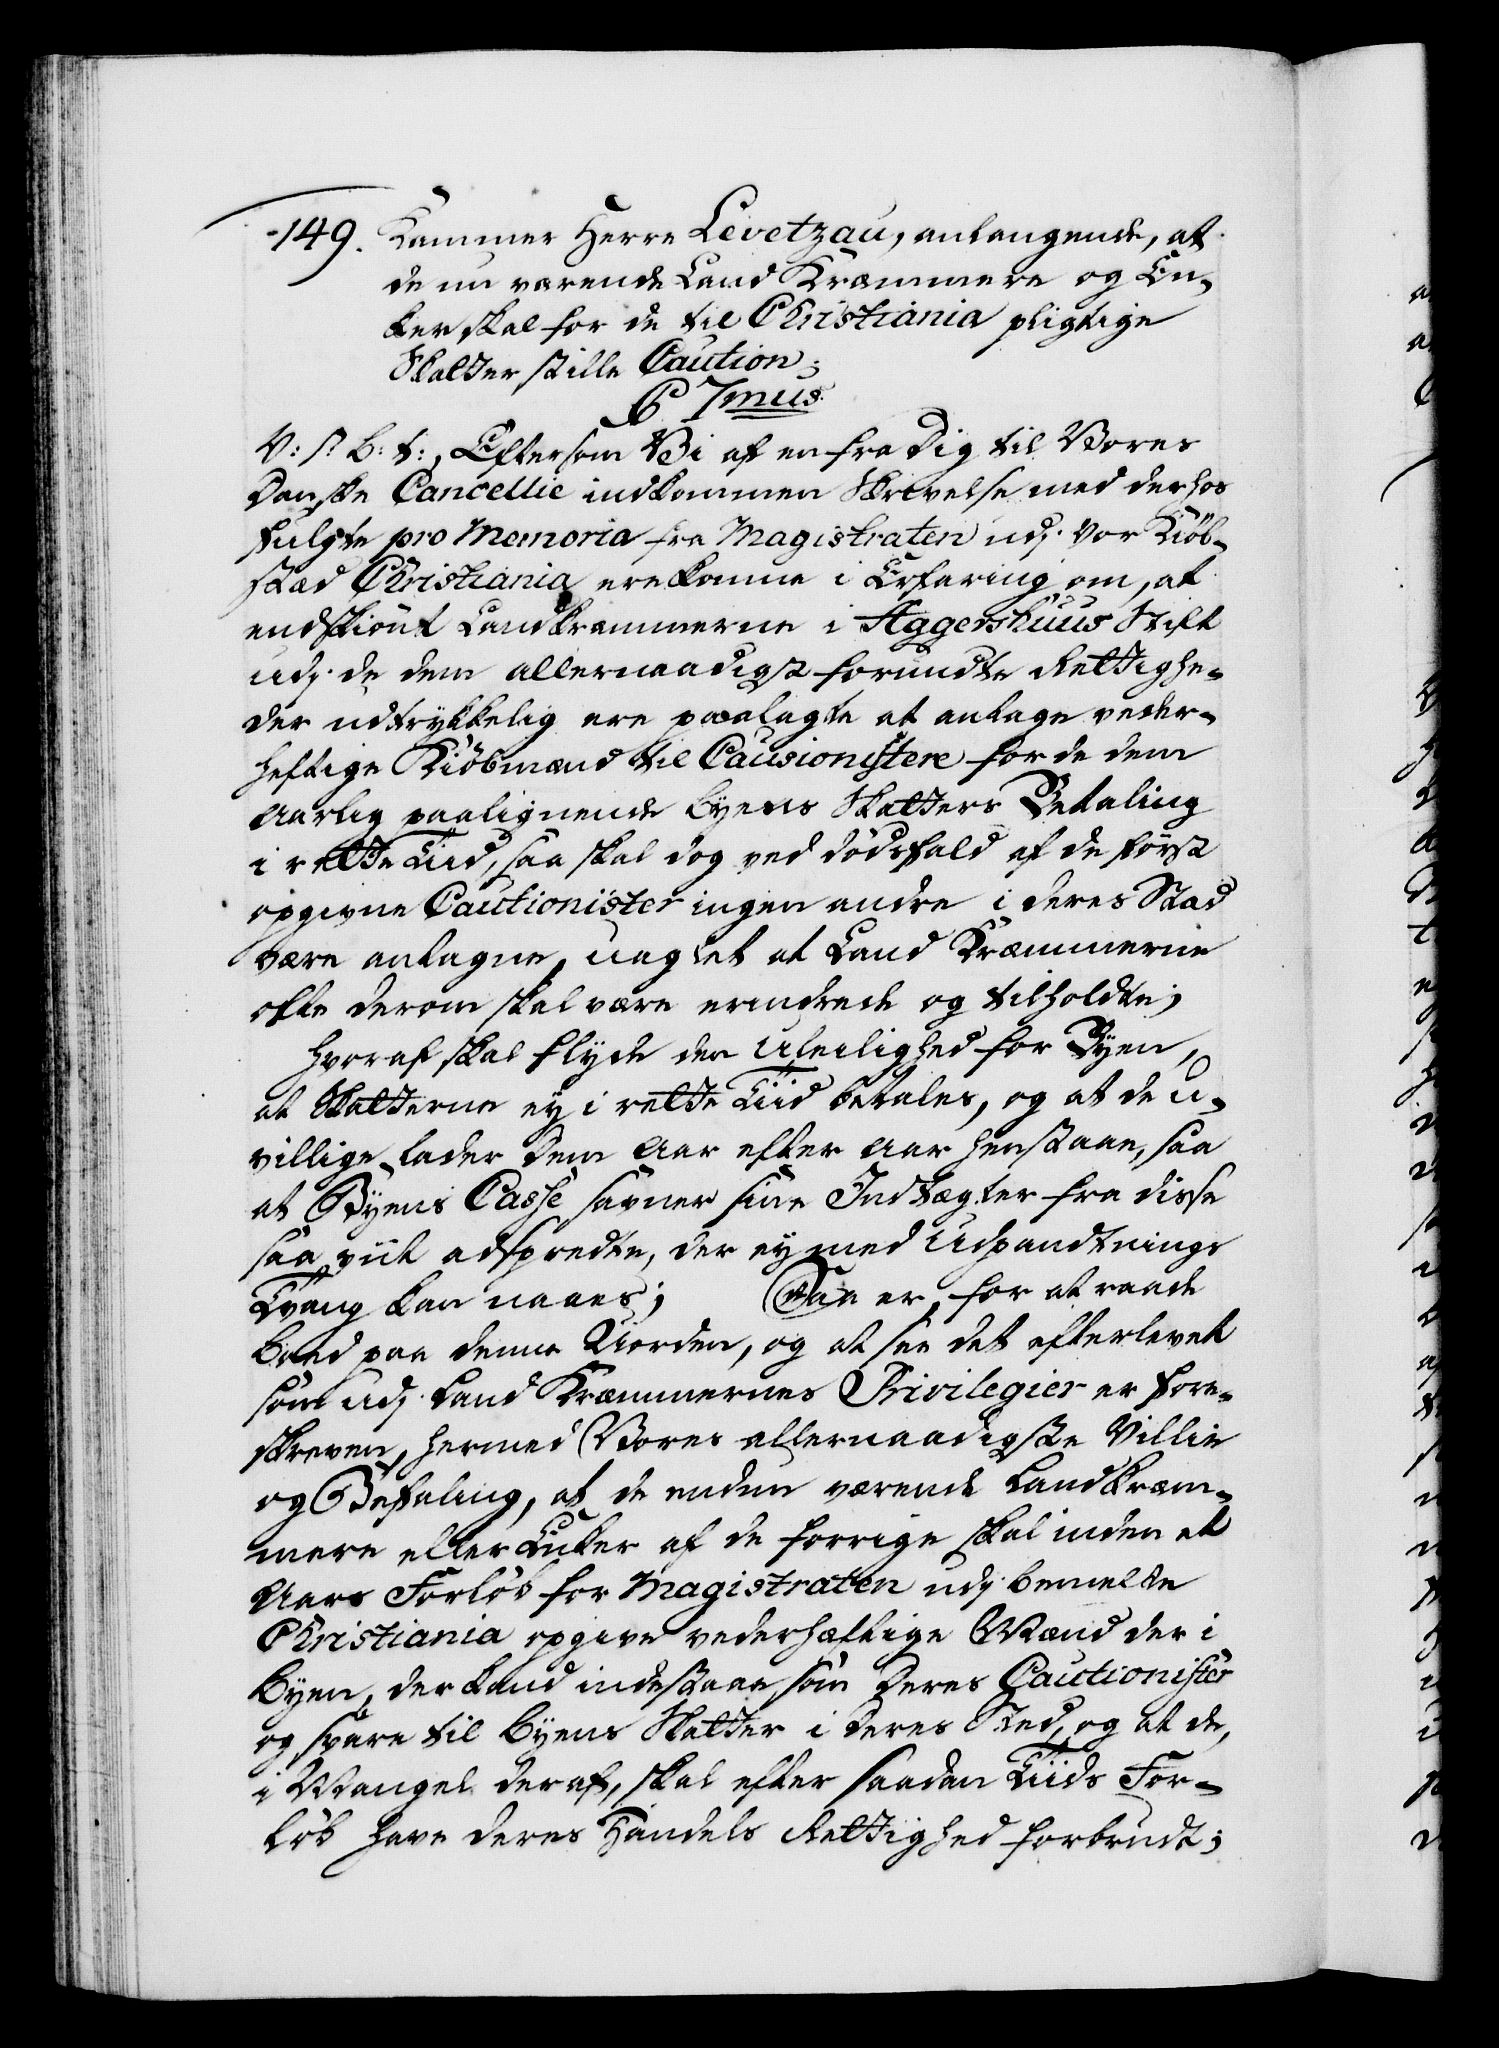 149. Kammer Herre Levetzau, anlangende, at
de nu værende Land Kræmmere og En-
ker skal for de til Christiania pligtige
Skatter stille Caution;
C 7mus.
V: s: B: t:, Eftersom Vi af en fra Dig til Vores
Danske Cancellie indkommen Skrivelse med derhos
fulgte pro Memoria fra Magistraten udj vor Kiöb-
stad Christiania ere komne i Erfaring om, at
endskiönt Landkræmmerne i Aggershuus Stift
udj de dem allernaadigst forundte Rettighe-
der udtrykkelig ere paalagte at antage veder-
heftige Kiöbmænd til Causionistere for de dem
aarlig paalignende Byens Skatters Betaling
i rette Tiid, saa skal dog ved dödsfald af de först
opgivne Cautionister ingen andre i deres Stad
være antagne, uagtet at Land Kræmmerne
ofte derom skal være erindrede og tilholdte;
hvoraf skal flyde den Uleilighed for Byen,
at Skatterne ej i rette Tiid betales, og at de u-
villige lader dem Aar efter Aar henstaae, saa
at Byens Casse savner sine Indtægter fra disse
saa viit adspredte, der ej med Udpandtnings
Tvang kan naaes; Saa er, for at raade
Bod paa denne Uorden, og at see det efterlevet
som udj Land Kræmmernes Privilegier er fore-
skreven, hermed Vores allernaadigste Villie
og Befaling, at de endnu værende Landkræm-
mere eller Enker af de forrige skal inden et
Aars Forlöb for Magistraten udj bemelte
Christiania opgive vederhæftige Mænd der i
Byen, der kand indestaae som deres Cautionister
og svare til Byens Skatter i deres Sted, og at de,
i Mangel deraf, skal efter saadan Tiids For-
löb have deres Handels Rettighed forbrudt;